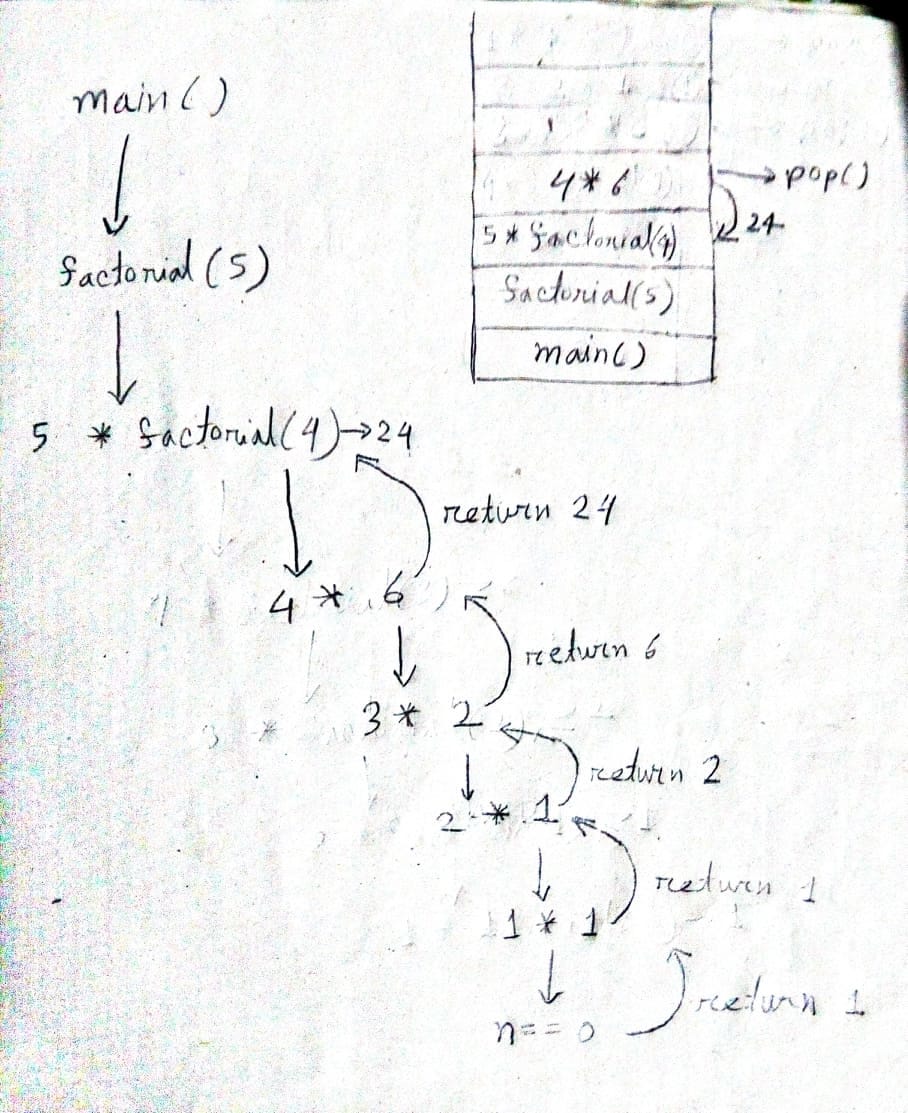 main()
factorial(5)
5 * factorial(4)→24
return 24
4 * 6
return 6
3 * 2
return 2
2 * 1
return 1
1 * 1
return 1
n==0
4*6
→pop()
24
5 * factorial(4)
factorial(5)
main()